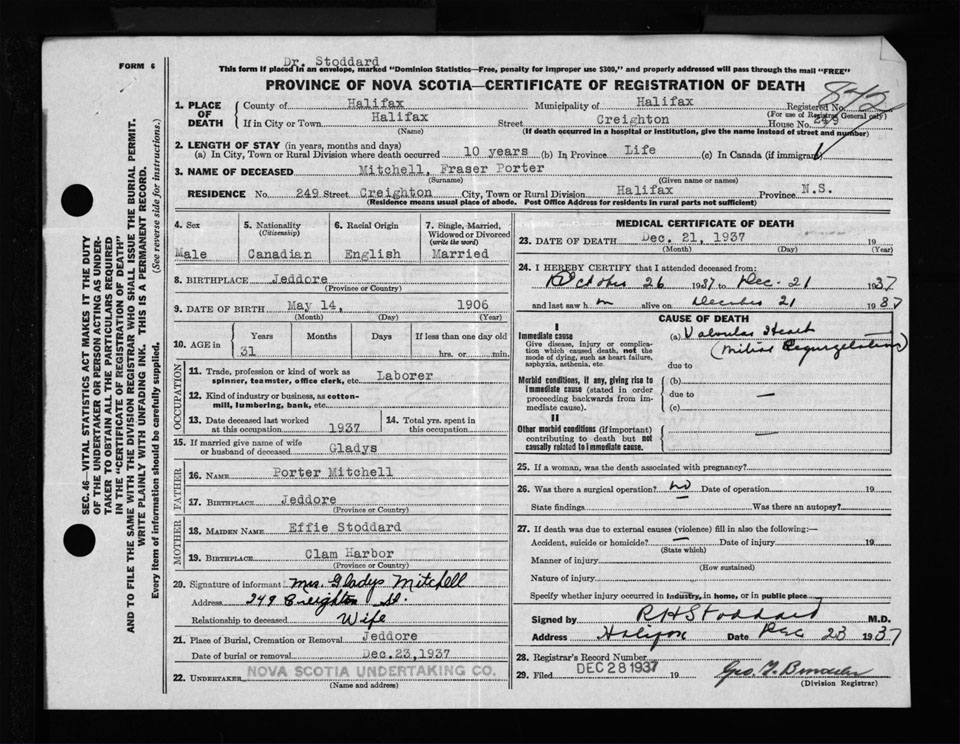 FORM 6
Dr. Stoddard
This form if placed in an envelope, marked "Dominion Statistics—Free, penalty for improper use $300," and properly addressed will pass through the mail "FREE"
PROVINCE OF NOVA SCOTIA—CERTIFICATE OF REGISTRATION OF DEATH
1. PLACE OF DEATH
County of Halifax Municipality of Halifax Registered No.
(For use of Registrar General only)
If in City or Town Halifax Street Creighton House No. 249
(Name) (If death occurred in a hospital or institution, give the name instead of street and number)
2. LENGTH OF STAY (in years, months and days)
(a) In City, Town or Rural Division where death occurred 10 years (b) In Province Life (c) In Canada (if immigrant)
3. NAME OF DECEASED Mitchell, Fraser Porter
(Surname) (Given name or names)
RESIDENCE No. 249 Street Creighton City, Town or Rural Division Halifax Province N.S.
(Residence means usual place of abode. Post Office Address for residents in rural parts not sufficient)
4. Sex
Male
5. Nationality
(Citizenship)
Canadian
6. Racial Origin
English
7. Single, Married,
Widowed or Divorced
(write the word)
Married
8. BIRTHPLACE Jeddore
(Province or Country)
9. DATE OF BIRTH May 14, 1906
(Month) (Day) (Year)
10. AGE in
Years Months Days If less than one day old
31 hrs. or min.
OCCUPATION
11. Trade, profession or kind of work as
spinner, teamster, office clerk, etc. Laborer
12. Kind of industry or business, as cotton-
mill, lumbering, bank, etc.
13. Date deceased last worked
at this occupation 1937
14. Total yrs. spent in
this occupation
15. If married give name of wife
or husband of deceased Gladys
FATHER
16. NAME Porter Mitchell
17. BIRTHPLACE Jeddore
(Province or Country)
MOTHER
18. MAIDEN NAME Effie Stoddard
19. BIRTHPLACE Clam Harbor
(Province or Country)
20. Signature of informant Mrs. Gladys Mitchell
Address 249 Creighton St.
Relationship to deceased Wife
21. Place of Burial, Cremation or Removal Jeddore
Date of burial or removal Dec. 23, 1937
22. UNDERTAKER NOVA SCOTIA UNDERTAKING CO.
(Name and address)
MEDICAL CERTIFICATE OF DEATH
23. DATE OF DEATH Dec. 21, 1937 19
(Month) (Day) (Year)
24. I HEREBY CERTIFY that I attended deceased from:
October 26 1937 to Dec. 21 1937
and last saw h m alive on December 21 1937
CAUSE OF DEATH
I
Immediate cause
Give disease, injury or complica-
tion which caused death, not the
mode of dying, such as heart failure,
asphyxia, asthenia, etc.
(a) Valvular Heart
(Mitral Regurgitation)
due to
Morbid conditions, if any, giving rise to
immediate cause (stated in order
proceeding backwards from im-
mediate cause).
(b)
due to —
(c)
II
Other morbid conditions (if important)
contributing to death but not
causally related to immediate cause.
25. If a woman, was the death associated with pregnancy?
26. Was there a surgical operation? no Date of operation 19
State findings Was there an autopsy?
27. If death was due to external causes (violence) fill in also the following:—
Accident, suicide or homicide? — Date of injury 19
(State which)
Manner of injury
(How sustained)
Nature of injury
Specify whether injury occurred in industry, in home, or in public place
Signed by R H Stoddard M.D.
Address Halifax Date Dec 23 1937
28. Registrar's Record Number
29. Filed DEC 28 1937 19
(Division Registrar)
SEC. 46—VITAL STATISTICS ACT MAKES IT THE DUTY
OF THE UNDERTAKER OR PERSON ACTING AS UNDER-
TAKER TO OBTAIN ALL THE PARTICULARS REQUIRED
IN THE "CERTIFICATE OF REGISTRATION OF DEATH"
AND TO FILE THE SAME WITH THE DIVISION REGISTRAR WHO SHALL ISSUE THE BURIAL PERMIT.
WRITE PLAINLY WITH UNFADING INK. THIS IS A PERMANENT RECORD.
Every item of information should be carefully supplied. (See reverse side for instructions.)